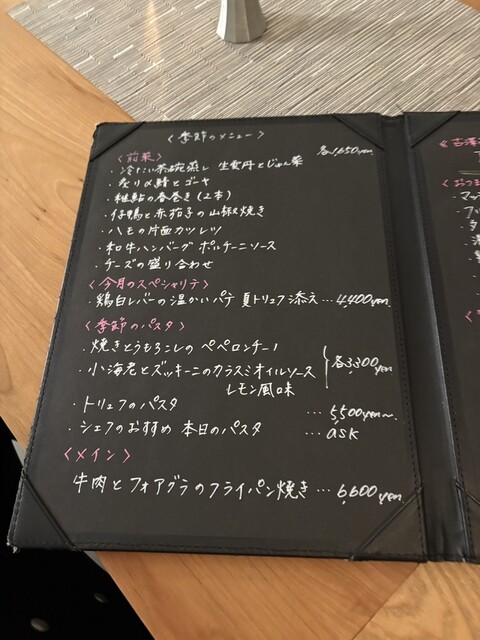 〈季節のメニュー〉
〈前菜〉 各1,650yen
・冷たい茶碗蒸し 生雲丹とじゅん菜
・炙り〆鯖とゴーヤ
・稚鮎の春巻き(2本)
・仔鴨と赤茄子の山椒焼き
・ハモの片面カツレツ
・和牛ハンバーグ ポルチーニソース
・チーズの盛り合わせ
〈今月のスペシャリテ〉
・鶏白レバーの温かいパテ 夏トリュフ添え…4,400yen
〈季節のパスタ〉
・焼きとうもろこしのペペロンチーノ
・小海老とズッキーニのカラスミオイルソース 各3,300yen
レモン風味
・トリュフのパスタ …5,500yen〜
・シェフのおすすめ 本日のパスタ …ask
〈メイン〉
牛肉とフォアグラのフライパン焼き…6,600yen